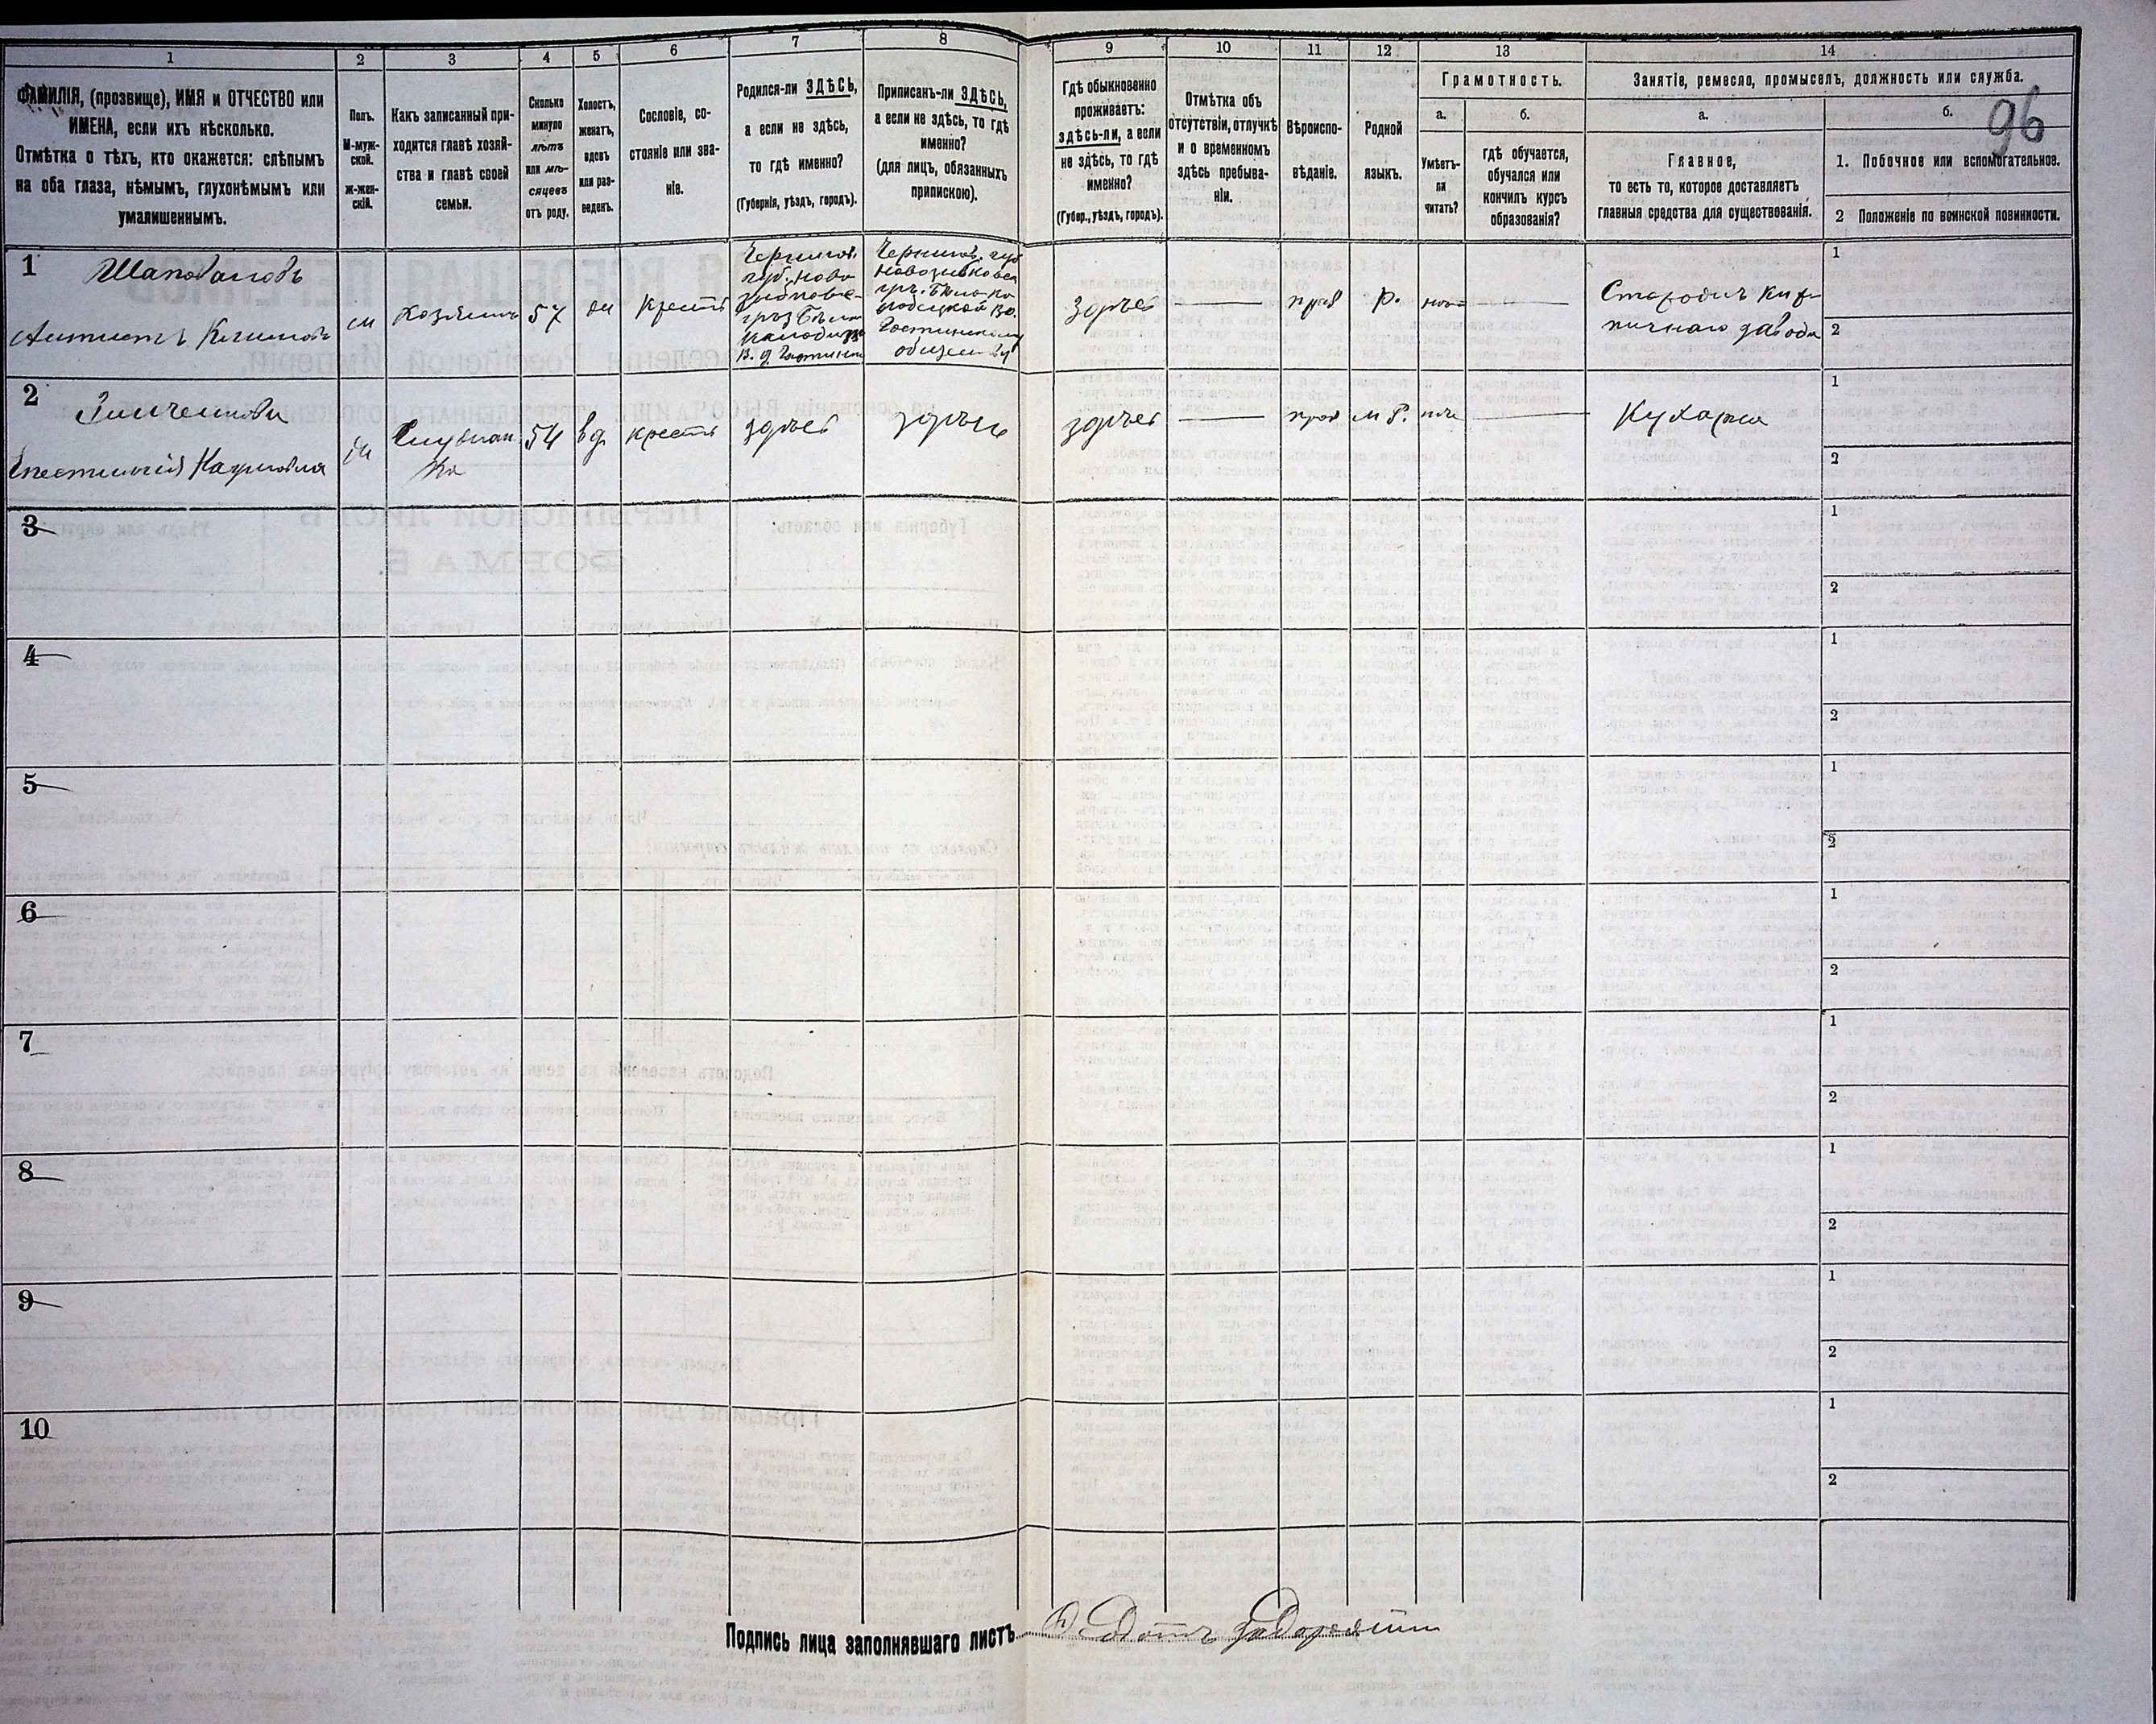 1 2 3 4 5 6 7 8 9 10 11 12 13 14
ФАМИЛІЯ, (прозвище), ИМЯ и ОТЧЕСТВО или
ИМЕНА, если ихъ нѣсколько.
Отмѣтка о тѣхъ, кто окажется: слѣпымъ
на оба глаза, нѣмымъ, глухонѣмымъ или
умалишеннымъ.
Полъ.
М-муж-
ской.
ж-жен-
скій.
Какъ записанный при-
ходится главѣ хозяй-
ства и главѣ своей
семьи.
Сколько
минуло
лѣтъ
или мѣ-
сяцевъ
отъ роду.
Холостъ,
женатъ,
вдовъ
или раз-
веденъ.
Сословіе, со-
стояніе или зва-
ніе.
Родился-ли ЗДѢСЬ,
а если не здѣсь,
то гдѣ именно?
(Губернія, уѣздъ, городъ).
Приписанъ-ли ЗДѢСЬ,
а если не здѣсь, то гдѣ
именно?
(для лицъ, обязанныхъ
припискою).
Гдѣ обыкновенно
проживаетъ:
здѣсь-ли, а если
не здѣсь, то гдѣ
именно?
(Губер., уѣздъ, городъ).
Отмѣтка объ
отсутствіи, отлучкѣ
и о временномъ
здѣсь пребыва-
ніи.
Вѣроиспо-
вѣданіе.
Родной
языкъ.
Грамотность.
а.
Умѣетъ-
ли
читать?
б.
гдѣ обучается,
обучался или
кончилъ курсъ
образованія?
Занятіе, ремесло, промыселъ, должность или служба.
а.
Главное,
то есть то, которое доставляетъ
главныя средства для существованія.
б.
96
1. Побочное или вспомогательное.
2 Положеніе по воинской повинности.
1
Шаповаловъ
Климовъ
м
хозяинъ
57
жн
крестъ
Чернигов.
губ. Ново
Чернигов. губ
обществу
здѣсь
прав
Р.
Кир-
пичнаго завода
1
2
2
Зинченкова
Карповна
жн
54
вд
крестъ
здѣсь
здѣсь
здѣсь
прав
М Р.
Кухарка
1
2
3
1
2
4
1
2
5
1
2
6
1
2
7
1
2
8
1
2
9
1
2
10
1
2
Подпись лица заполнявшаго листъ